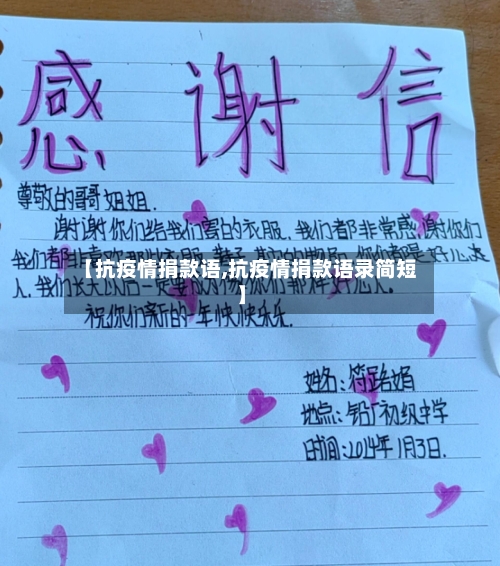 感谢信
尊敬的哥姐姐.
谢谢你们给我们寄的衣服、我们都非常感谢你们
我们者
【抗疫情捐款语,抗疫情捐款语录简短
】
人.我们长大以后一定要成为像你们那样好心人.
祝你们新的一年快快乐乐.
姓名:符路娟
地点:铅厂初级中学
时间:2014年1月3日.